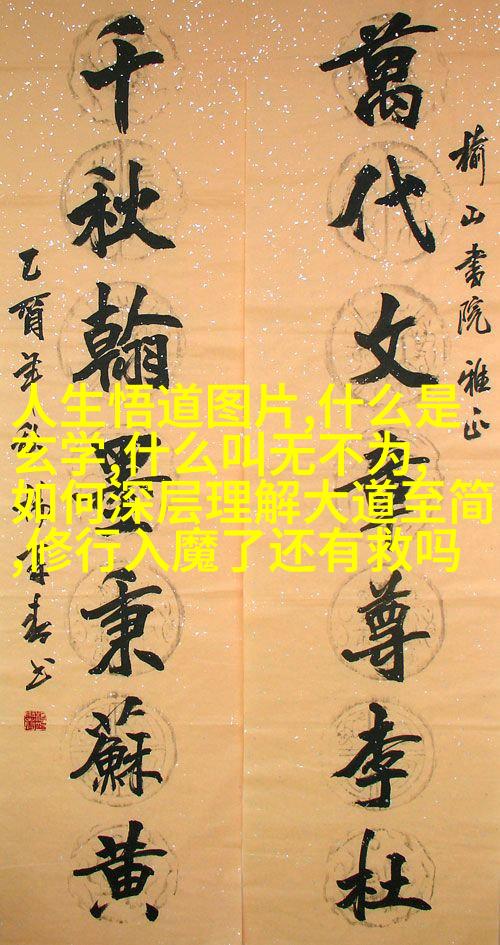 榆山書院雅正
萬代文章尊李杜
千秋翰墨秉蘇黄
人生悟道图片,什么是
玄学,什么叫无不为,
如何深层理解大道至简
,修行入魔了还有救吗